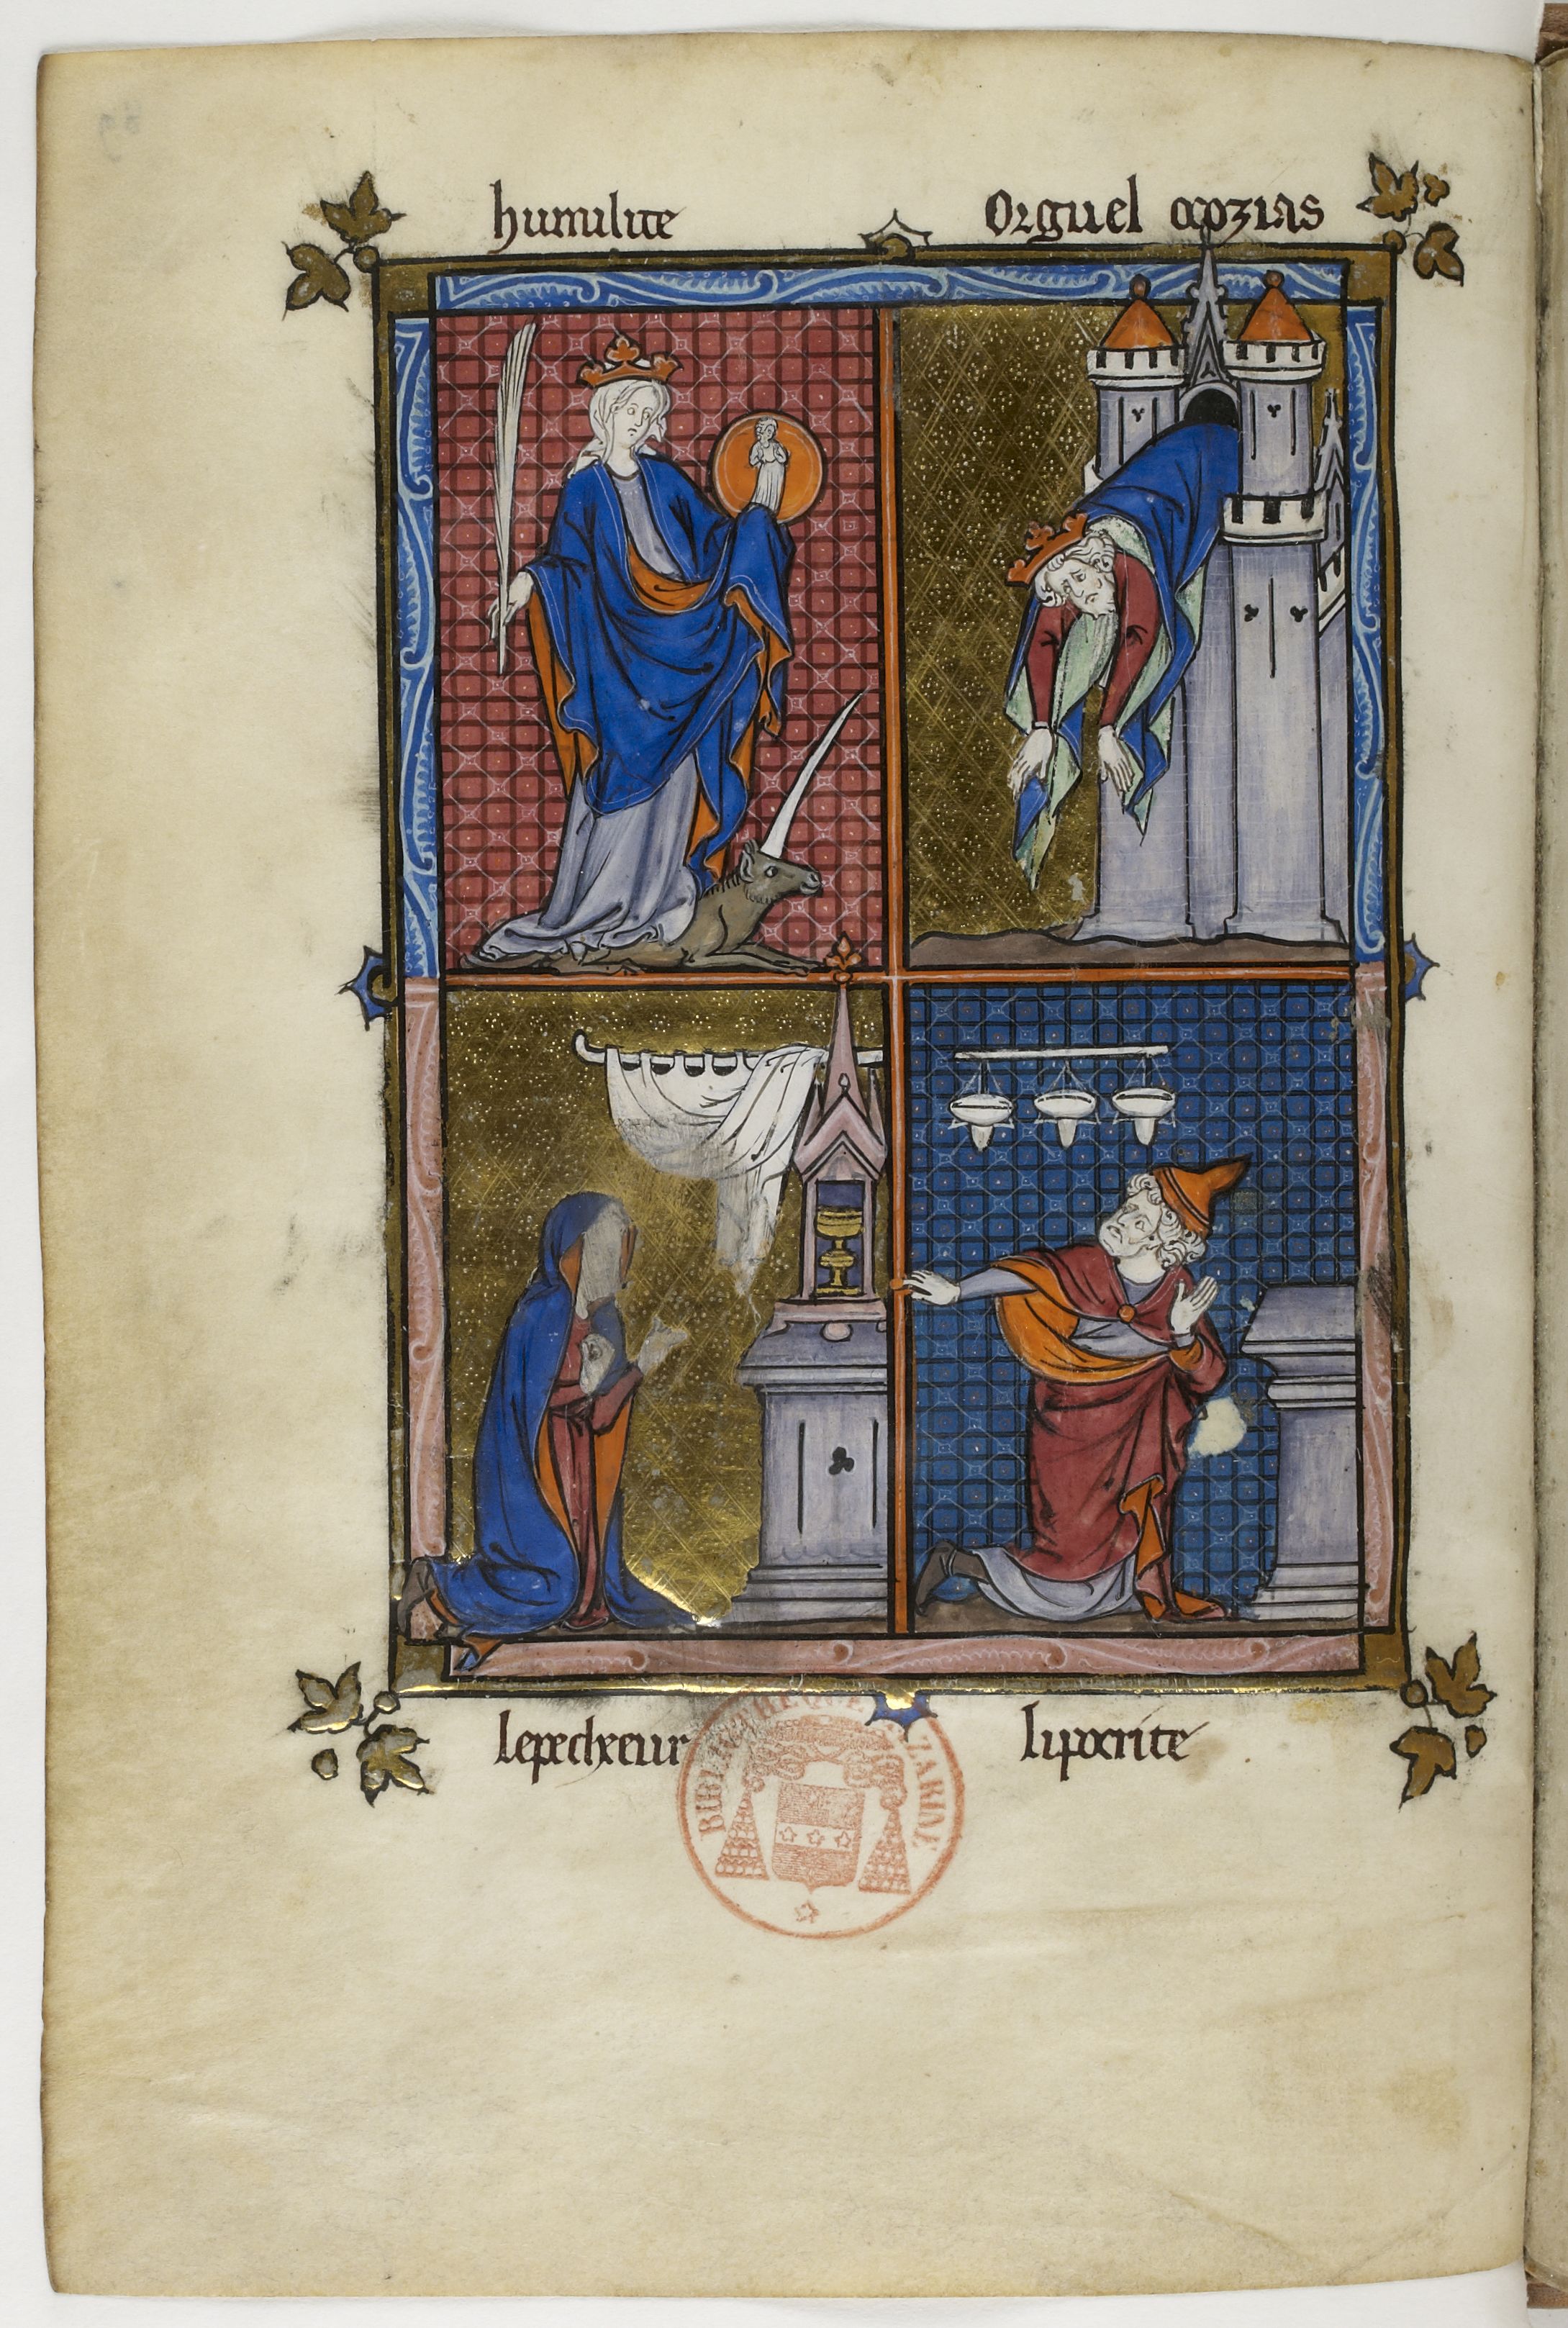 humilite
Orguel ocozias
lepecheeur
lipocrite
BIBLIOTHEQUE MAZARINE